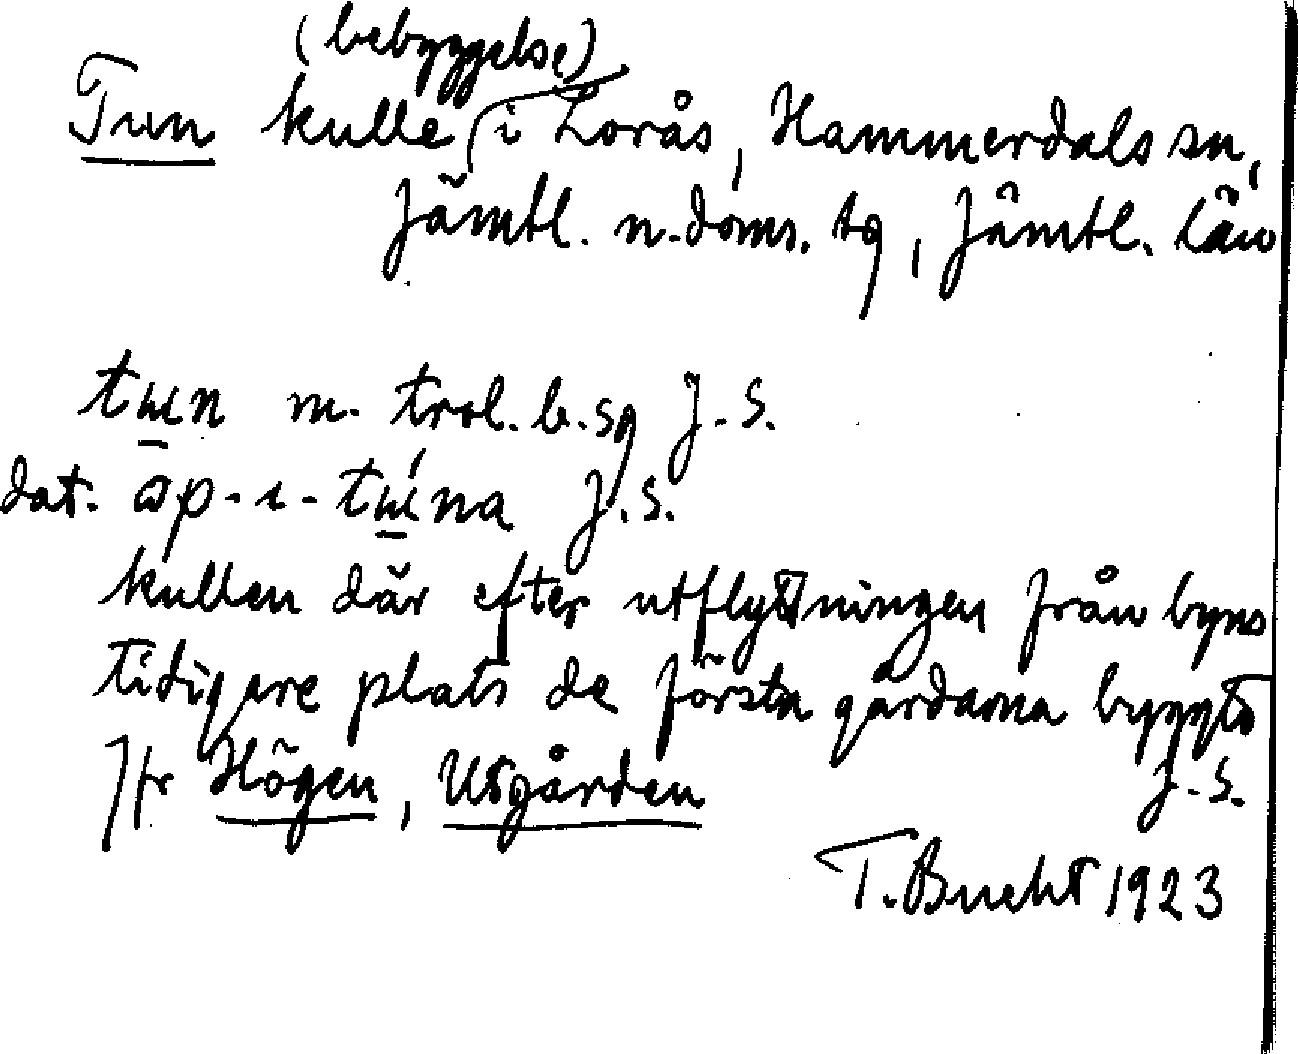 (bebyggelse)
Tun kulle i Lorås, Hammerdals sn,
Jämtl. n. doms. tg, Jämtl. Län
tɯn m. trol. b. sg J. S.
dat. ɷp-ı-tɯ́na J. S.
kullen där efter utflyttningen från byns
tidigare plats de första gårdarna byggts
J. S.
Jfr Högen, Utgården
T. Bucht 1923